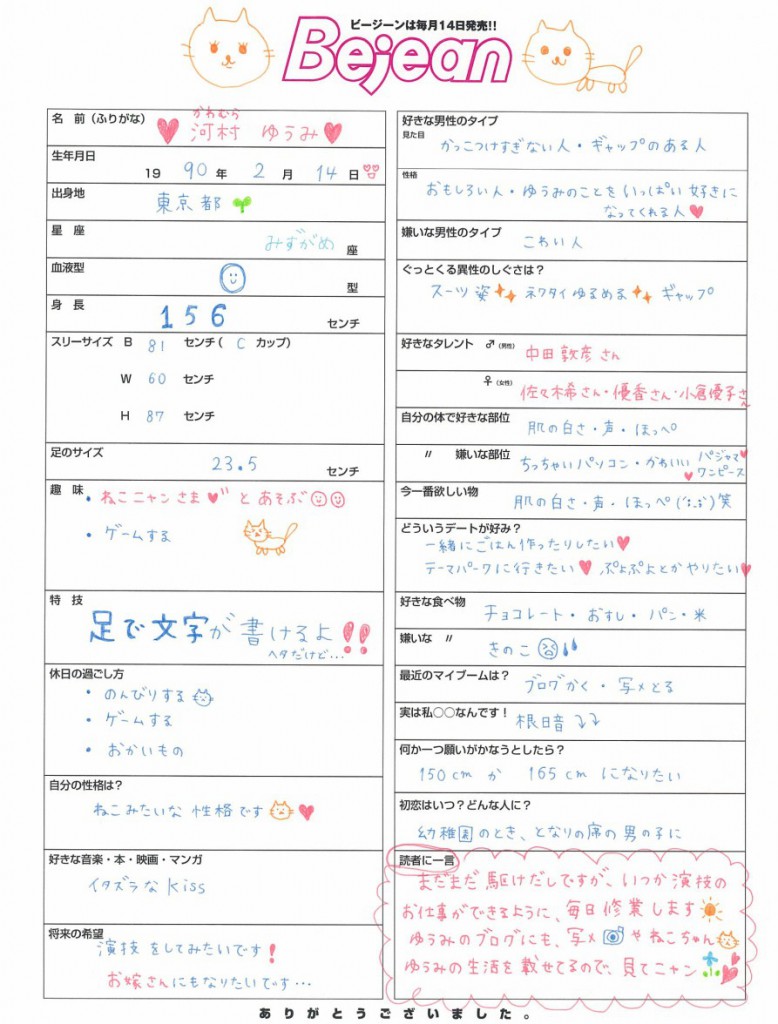 ビージーンは毎月14日発売!!
Bejean
名 前 (ふりがな)
かわむら
河村 ゆうみ
生年月日
19 90 年 2 月 14 日
出身地
東京都
星 座
みずがめ 座
血液型
型
身 長
156 センチ
スリーサイズ B 81 センチ( C カップ)
W 60 センチ
H 87 センチ
足のサイズ
23.5 センチ
趣 味
・ねこニャンさま と あそぶ
・ゲームする
特 技
足で文字が書けるよ!!
ヘタだけど…
休日の過ごし方
・のんびりする
・ゲームする
・おかいもの
自分の性格は?
ねこみたいな 性格です
好きな音楽・本・映画・マンガ
イタズラなkiss
将来の希望
演技 をしてみたいです!
お嫁さんにもなりたいです…
好きな男性のタイプ
見た目
かっこつけすぎない人・ギャップのある人
性格
おもしろい人・ゆうみのことを いっぱい 好きに
なってくれる人
嫌いな男性のタイプ
こわい人
ぐっとくる異性のしぐさは?
スーツ 姿 ネクタイ ゆるめる ギャップ
好きなタレント ♂(男性)
中田敦彦さん
♀(女性)
佐々木希さん・優香さん・小倉優子さん
自分の体で好きな部位
肌の白さ・声・ほっぺ
〃 嫌いな部位
ちっちゃいパソコン・かわいい パジャマ
ワンピース
今一番欲しい物
肌の白さ・声・ほっぺ 笑
どういうデートが好み?
一緒にごはん作ったりしたい
テーマパークに行きたい ぷよぷよとかやりたい
好きな食べ物
チョコレート・おすし・パン・米
嫌いな 〃
きのこ
最近のマイブームは?
ブログかく・写メとる
実は私○○なんです!
根暗
何か一つ願いがかなうとしたら?
150cm か 165cm になりたい
初恋はいつ?どんな人に?
幼稚園のとき、となりの席の男の子に
読者に一言
まだまだ駆けだしですが、いつか演技の
お仕事ができるように、毎日修業します
ゆうみのブログにも、写メ やねこちゃん
ゆうみの生活を載せてるので、見てニャン
ありがとうございました。